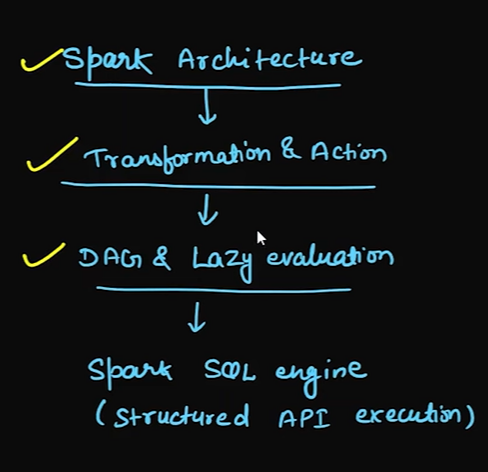 Spark Architecture
Transformation & Action
DAG & Lazy evaluation
Spark SQL engine
(Structured API execution)